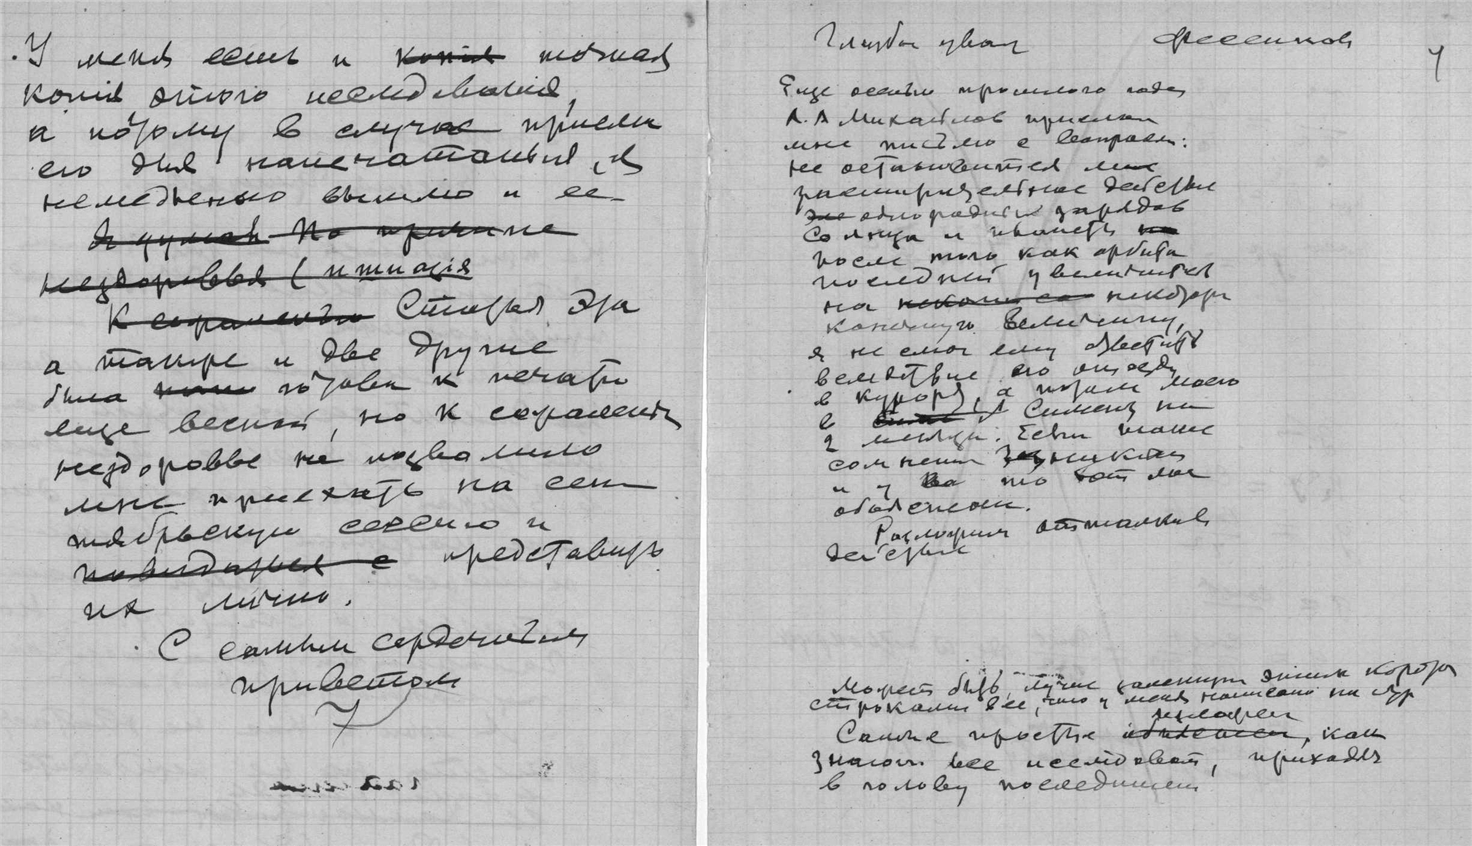 У меня есть и копия точная
копия этого исследования,
а потому в случае присылки
его для напечатания, я
немедленно вышлю и ее
Я думаю По причине
нездоровья (
К сожалению Старая Эра
а также и две другие
была готова к печати
еще весной, но к сожалению
нездоровье не позволило
мне приехать на сен
тябрьскую сессию и
повидаться с представить
их лично.
С самым сердечным
приветом
Глубокоуваж Фесенков
4
Еще осенью прошлого года
А.А Михайлов прислал
мне письмо с вопросом:
не остановится ли
расширительное действие
однородных зарядов
Солнца и планеты
после того как орбита
последней увеличится
на некоторую
конечную величину,
я не смог ему ответить
вследствие его отъезда
в курорт, а потом моего
в Симеиз на
2 месяца. Если такие
сомнения возникли
и у Вас то вот мое
объяснение.
Разлагая отталкив
действие
Может быть, лучше заменить этими коротк
строками все, что у меня написано на стр
Самые простые идеи, как
знают все исследоват, приходят
в голову последними